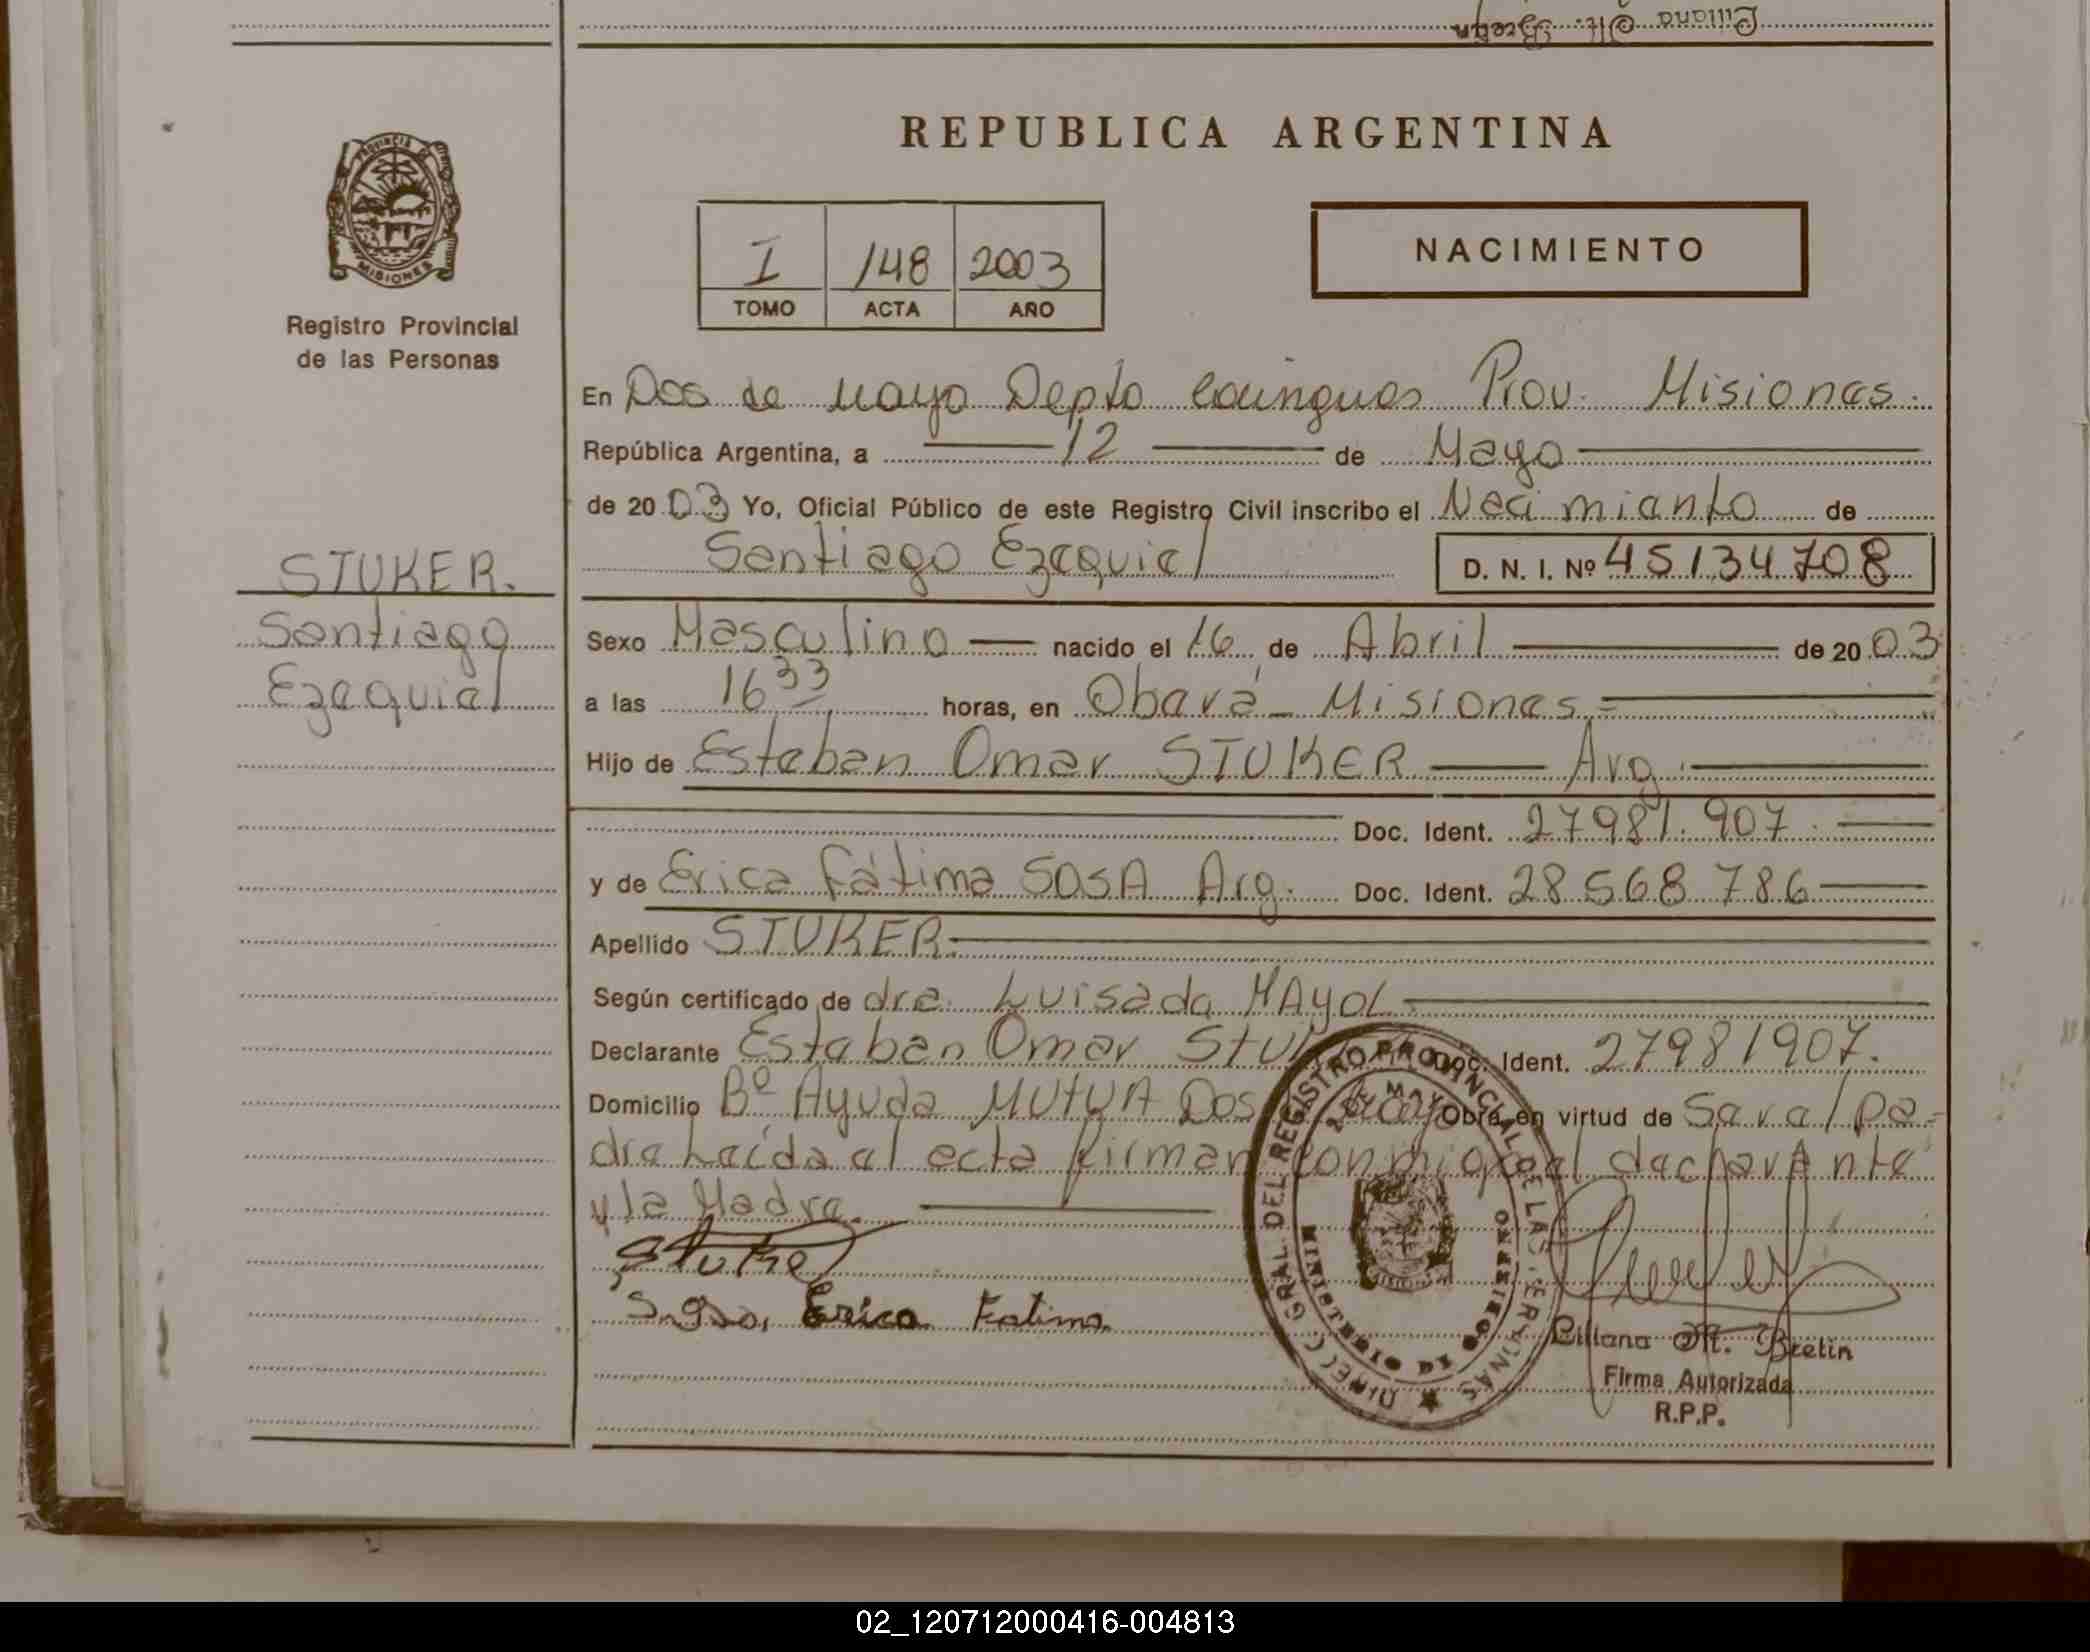 Liliana M. Bretin
REPUBLICA ARGENTINA
PROVINCIA DE
MISIONES
Registro Provincial
de las Personas
I 148 2003
TOMO ACTA AÑO
NACIMIENTO
En Dos de Mayo Depto Cainguas Prov. Misiones.
República Argentina, a 12 de Mayo
de 2003 Yo, Oficial Público de este Registro Civil inscribo el Nacimiento de
Santiago Ezequiel D. N. I. Nº 45134708
STUKER.
Santiago
Ezequiel
Sexo Masculino nacido el 16 de Abril de 2003
a las 16 33 horas, en Oberá - Misiones =
Hijo de Esteban Omar STUKER Arg.
Doc. Ident. 27981.907
y de Erica Fátima SOSA Arg. Doc. Ident. 28568786
Apellido STUKER.
Según certificado de dra. Luisada MAYOL
Declarante Esteban Omar Stuker Doc. Ident. 27981907.
Domicilio Bº Ayuda MUTUA Dos de Mayo Obra en virtud de Ser al Pa=
dre Leída el acta firman conmigo el declarante
y la Madre.
Stuker
Sosa, Erica Fatima
DIRECC GRAL DEL REGISTRO PROVINCIAL DE LAS PERSONAS
2 DE MAYO
MINISTERIO DE GOBIERNO
Liliana M. Bretin
Firma Autorizada
R.P.P.
02_120712000416-004813